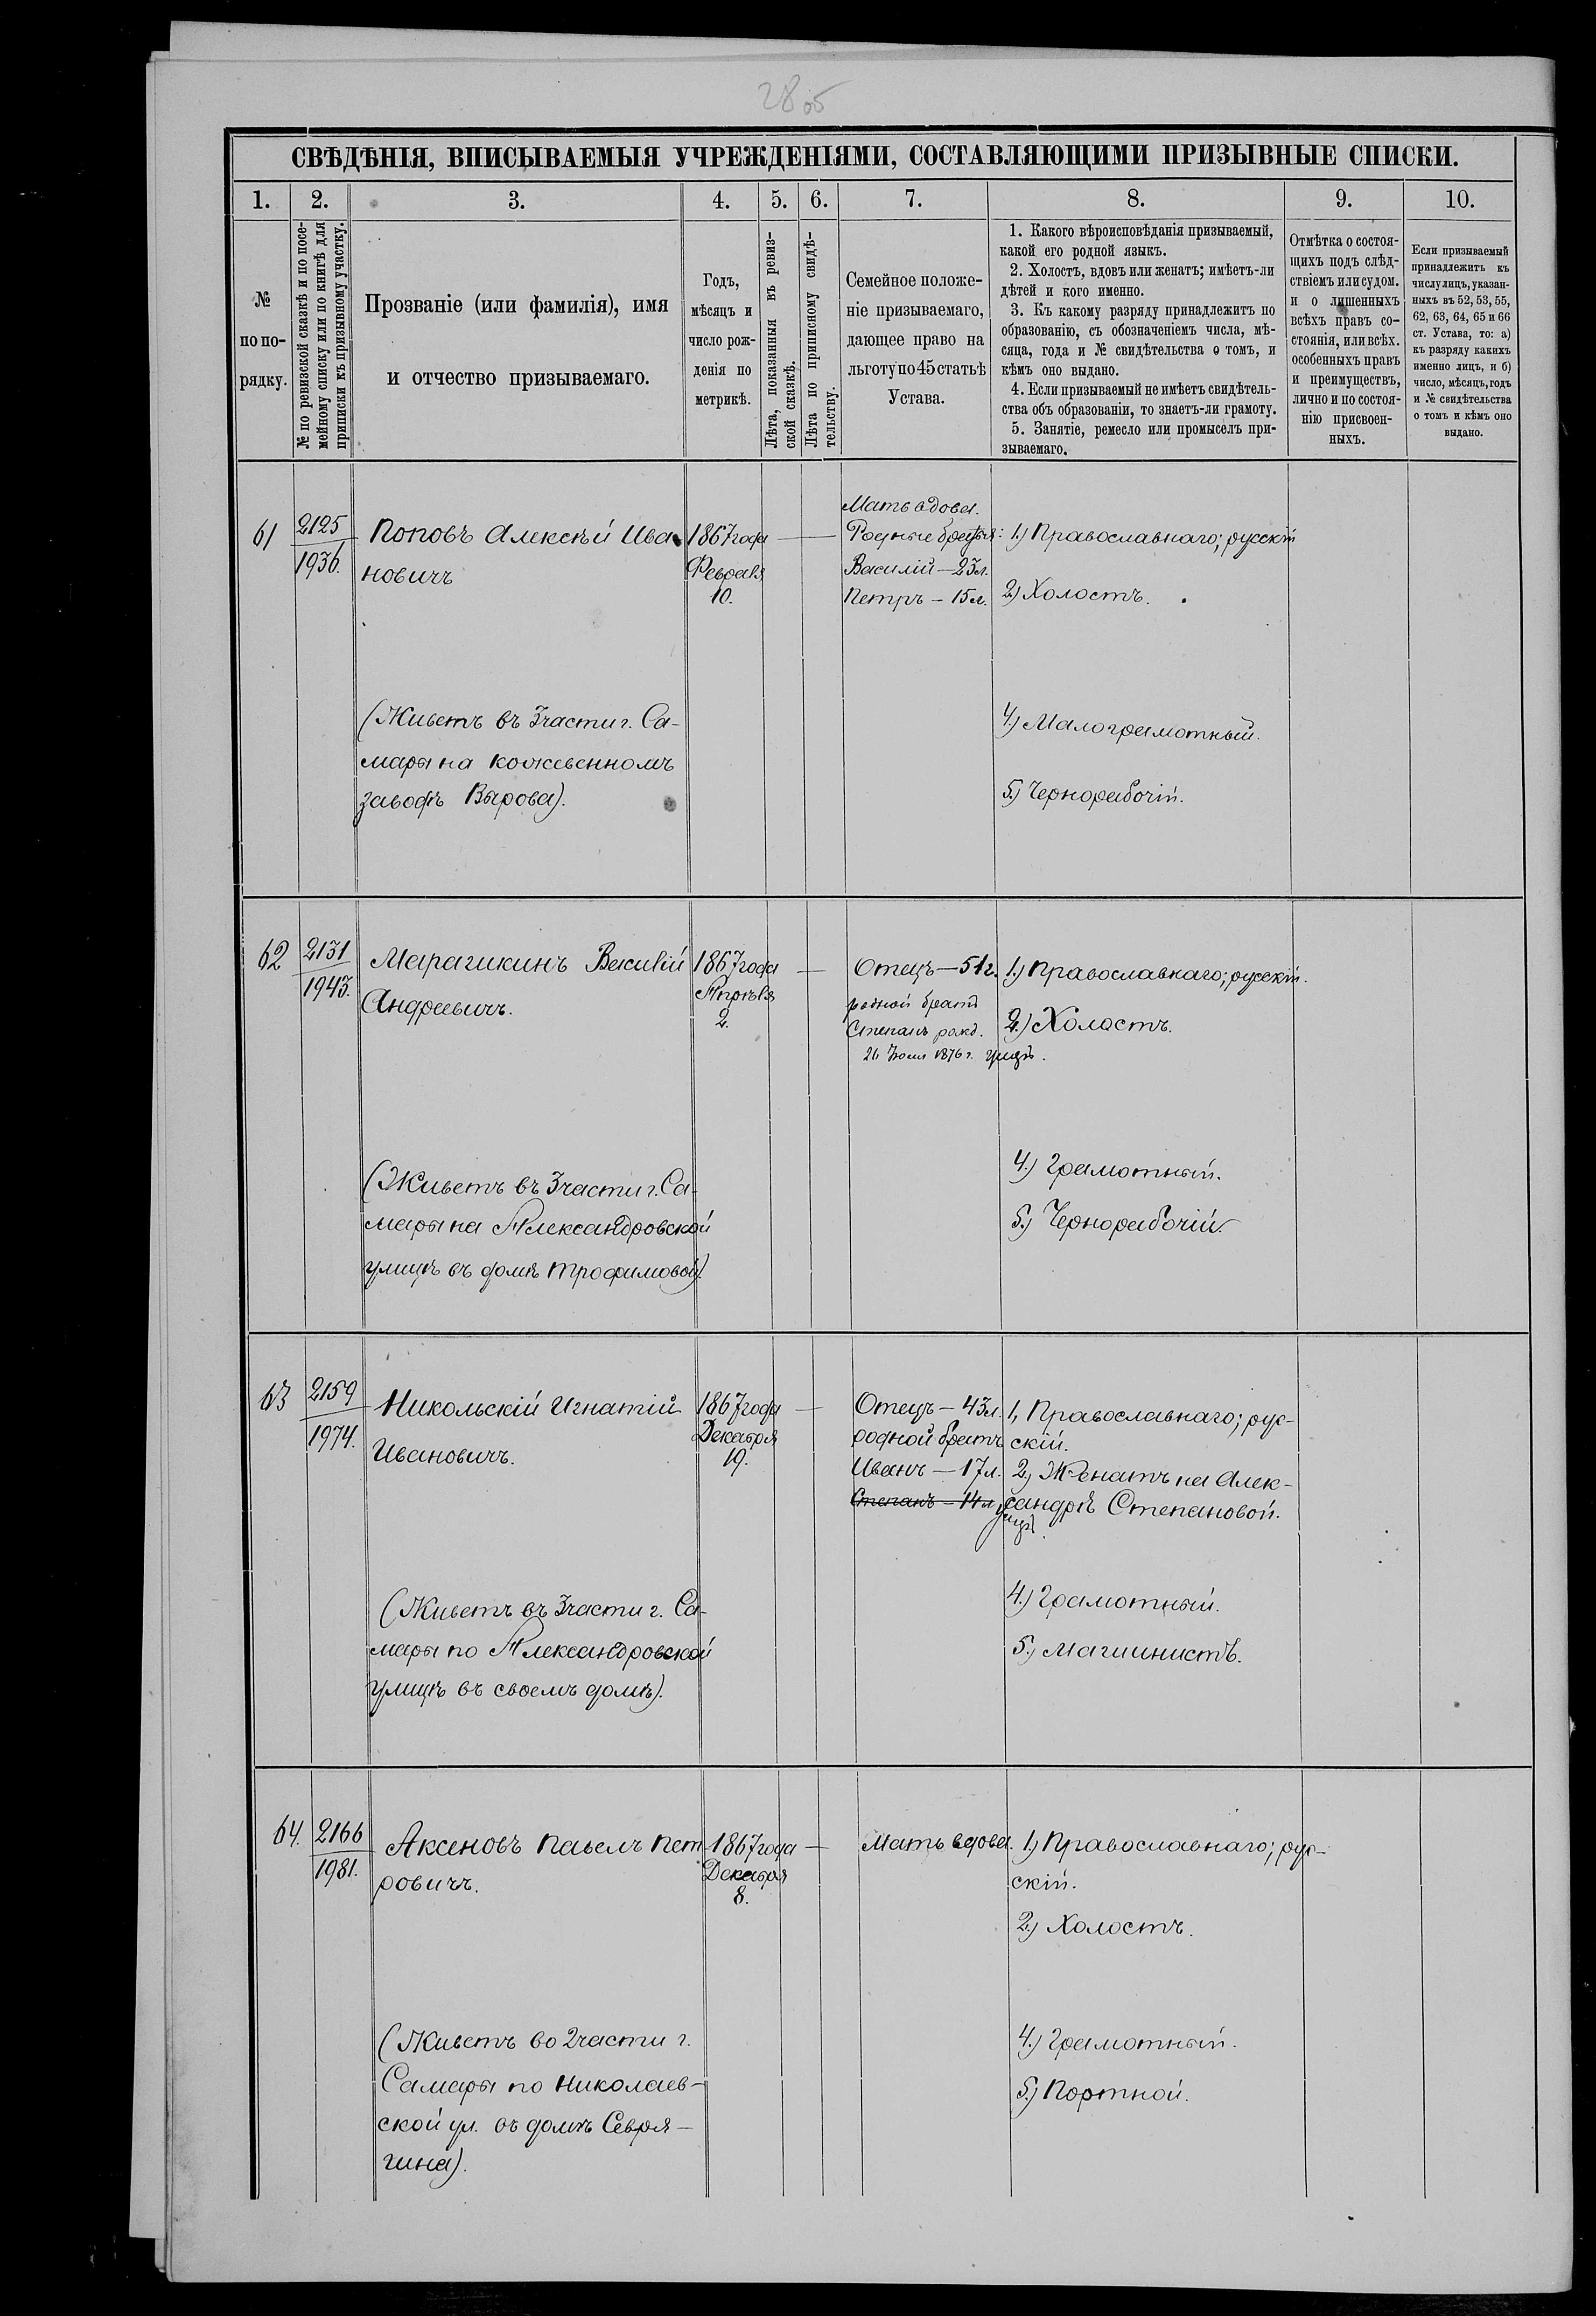 28об
СВѢДѢНІЯ, ВПИСЫВАЕМЫЯ УЧРЕЖДЕНІЯМИ, СОСТАВЛЯЮЩИМИ ПРИЗЫВНЫЕ СПИСКИ.
1. 2. 3. 4. 5. 6. 7. 8. 9. 10.
№
по по-
рядку.
№ по ревизской сказкѣ и по посе-
мейному списку или по книгѣ для
приписки къ призывному участку.
Прозваніе (или фамилія), имя
и отчество призываемаго.
Годъ,
мѣсяцъ и
число рож-
денія по
метрикѣ.
Лѣта, показанныя въ ревиз-
ской сказкѣ.
Лѣта по приписному свидѣ-
тельству.
Семейное положе-
ніе призываемаго,
дающее право на
льготу по 45 статьѣ
Устава.
1. Какого вѣроисповѣданія призываемый,
какой его родной языкъ.
2. Холостъ, вдовъ или женатъ; имѣетъ-ли
дѣтей и кого именно.
3. Къ какому разряду принадлежитъ по
образованію, съ обозначеніемъ числа, мѣ-
сяца, года и № свидѣтельства о томъ, и
кѣмъ оно выдано.
4. Если призываемый не имѣетъ свидѣтель-
ства объ образованіи, то знаетъ-ли грамоту.
5. Занятіе, ремесло или промыселъ при-
зываемаго.
Отмѣтка о состоя-
щихъ подъ слѣд-
ствіемъ или судом.
и о лишенныхъ
всѣхъ правъ со-
стоянія, или всѣх.
особенныхъ правъ
и преимуществъ,
лично и по состоя-
нію присвоен-
ныхъ.
Если призываемый
принадлежитъ къ
числу лицъ, указан-
ныхъ въ 52, 53, 55,
62, 63, 64, 65 и 66
ст. Устава, то: а)
къ разряду какихъ
именно лицъ, и б)
число, мѣсяцъ, годъ
и № свидѣтельства
о томъ и кѣмъ оно
выдано.
61
2125
1936.
Поповъ Алексѣй Ива-
новичъ
(Живетъ въ 3 части г. Са-
мары на кожевенномъ
заводѣ Вырова).
1867 года
Февраля
10.
Мать вдова.
Родные братья:
Василій — 23 л.
Петръ — 15 л.
1.) Православнаго; русскій
2.) Холостъ.
4.) Малограмотный.
5.) Чернорабочій.
62
2131
1943.
Марагикинъ Василій
Андреевичъ.
(Живетъ въ 3 части г. Са-
мары на Александровской
улицѣ въ домѣ Трофимовой).
1867 года
Апрѣля
2.
Отецъ — 51 г.
родной братъ
Степанъ рожд.
26 Іюля 1876 г.
1.) Православнаго; русскій.
2.) Холостъ.
4.) Грамотный.
5.) Чернорабочій.
63
2159
1974.
Никольскій Игнатій
Ивановичъ.
(Живетъ въ 3 части г. Са-
мары по Александровской
улицѣ въ своемъ домѣ).
1867 года
Декабря
19.
Отецъ — 43 л.
родной братъ
Иванъ — 17 л.
Степанъ — 14 л.
1, Православнаго; рус-
скій.
2.) Женатъ на Алек-
сандрѣ Степановой.
4.) Грамотный.
5.) Машинистъ.
64.
2166
1981.
Аксеновъ Павелъ Пет-
ровичъ.
(Живетъ во 2 части г.
Самары по Николаев-
ской ул. въ домѣ Севрю-
гина).
1867 года
Декабря
8.
Мать вдова.
1.) Православнаго; рус-
скій.
2.) Холостъ.
4.) Грамотный.
5.) Портной.